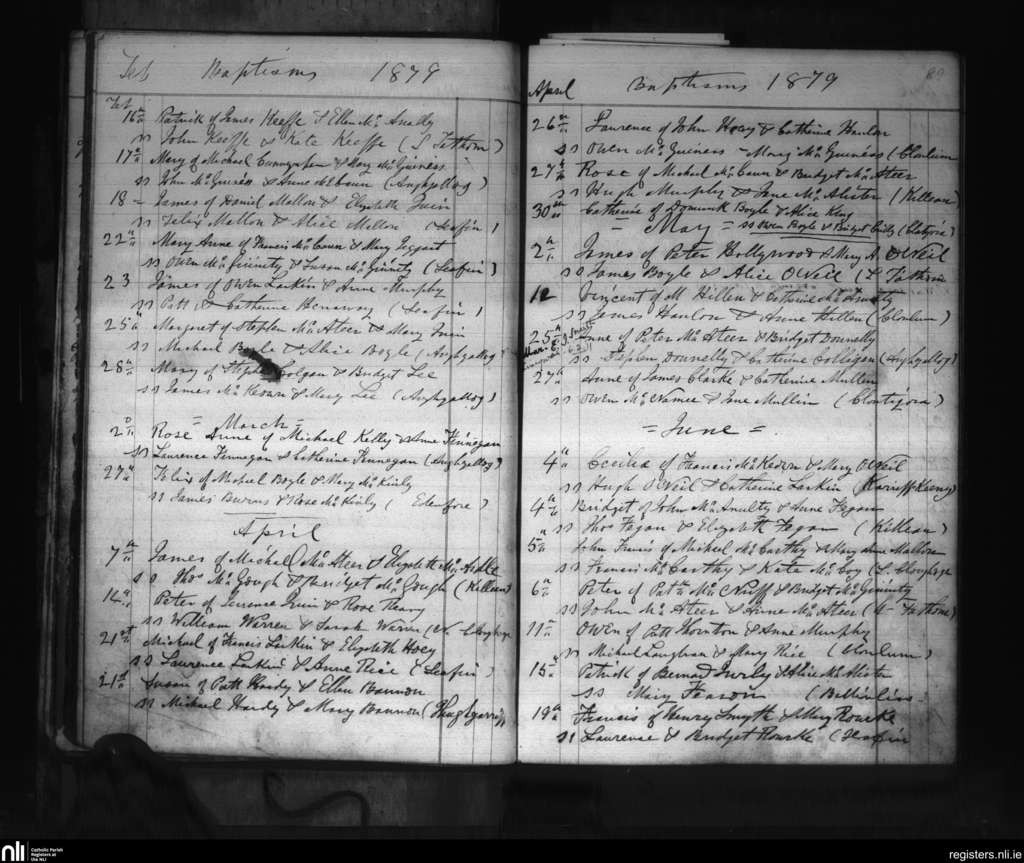 Feb Baptisms 1879
Feb
16th Patrick of James Keeffe & Ellen McAnally
ss John Keeffe & Kate Keeffe (S Fathom)
17th Mary of Michael & Mary McGuiness
ss John McGuiness & Anne (Anghgallog)
18 = James of Daniel Mallon & Elizabeth Quin
ss Felix Mallon & Alice Mallon
22nd Mary Anne of Francis McCann & Mary Teggart
ss Owen McGivinity & Susan McGivinity (Seafin)
23 James of Owen Larkin & Anne Murphy
ss Patt & Catherine (Seafin)
25th Margaret of Stephen McAteer & Mary Quin
ss Michael Boyle & Alice Boyle (Anghgallog)
28th Mary of & Bridget Lee
ss James McKeown & Mary Lee (Anghgallog)
= March =
2nd Rose Anne of Michael Kelly & Anne Finnegan
ss Laurence Finnegan & Catherine Finnegan (Anghgallog)
27th Felix of Michael Boyle & Mary McKinly
ss James Burns & Rose McKinly (Edenfore)
April
7th James of Michael McAteer & Elizabeth McArdle
ss Thos McGough & Bridget McGough (Killean)
14th Peter of Terence Quin & Rose
ss William Warren & Sarah Warren
21st Michael of Francis Larkin & Elizabeth Hoey
ss Laurence Larkin & Anne Rice (Seafin)
21st Susan of Patt Hardy & Ellen Bannon
ss Michael Hardy & Mary Bannon
April Baptisms 1879 89
26th Laurence of John Hoey & Catherine Hanlon
ss Owen McGuiness - Mary McGuiness (Clonlum)
27th Rose of Michael McCann & Bridget McAteer
ss Hugh Murphy & Jane McAlister (Killean
30th Catherine of Dominick Boyle & Alice King
= May = ss Owen Boyle & Bridget
2nd James of Peter Hollywood & Mary A. ONeil
ss James Boyle & Alice ONeil (S Fathom
12 Vincent of M Hillen & Catherine McAnulty
ss James Hanlon & Anne Hillen (Clonlum)
25th Anne of Peter McAteer & Bridget Donnelly
ss Stephen Donnelly & Catherine Colligan (Anghgallog)
27th Anne of James Clarke & Catherine Mullen
ss Owen McNamee & Jane Mullen (Clontigora)
= June =
4th Cecilia of Francis McKeown & Mary ONeil
ss Hugh ONeil & Catherine Larkin
4th Bridget of John McAnulty & Anne Fegan
ss Thos Fegan & Elizabeth Fegan (Killean)
5th John Francis of Michael McCarthy & Mary Anne Mallon
ss Francis McCarthy & Kate McCoy
6th Peter of Patk McNeiff & Bridget McGivinity
ss John McAteer & Anne McAteer
11th Owen of Patt Thornton & Anne Murphy
ss Michael Loughran & Mary Rice (Clonlum)
15th Patrick of Bernard & Alice McAlister
ss Mary Fearon
19th Francis of Henry Smyth & Mary Rourke
ss Laurence & Bridget Rourke (Seafin
nli Catholic Parish
Registers at
the NLI
registers.nli.ie